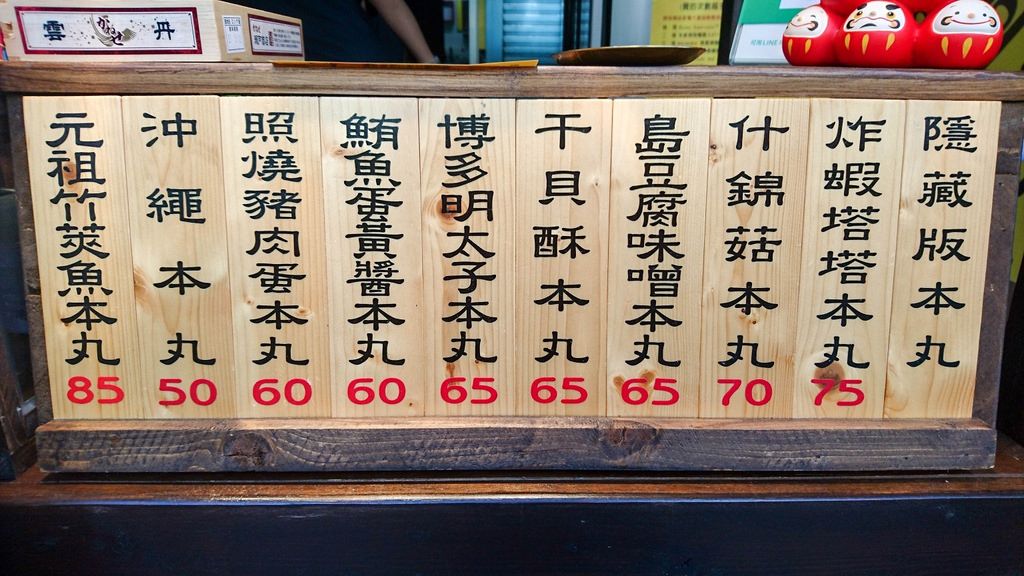 雲丹
元祖竹莢魚本丸
85
沖繩本丸
50
照燒豬肉蛋本丸
60
鮪魚蛋黃醬本丸
60
博多明太子本丸
65
干貝酥本丸
65
島豆腐味噌本丸
65
什錦菇本丸
70
炸蝦塔塔本丸
75
隱藏版本丸